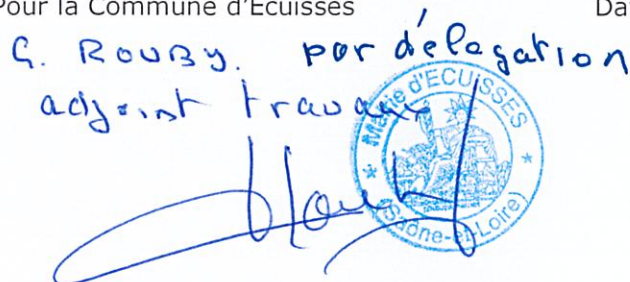 Pour la Commune d'Ecuisses Da
G. ROUBY. par délégation
adjoint travaux
Mairie d'ECUISSES
(Saône-et-Loire)